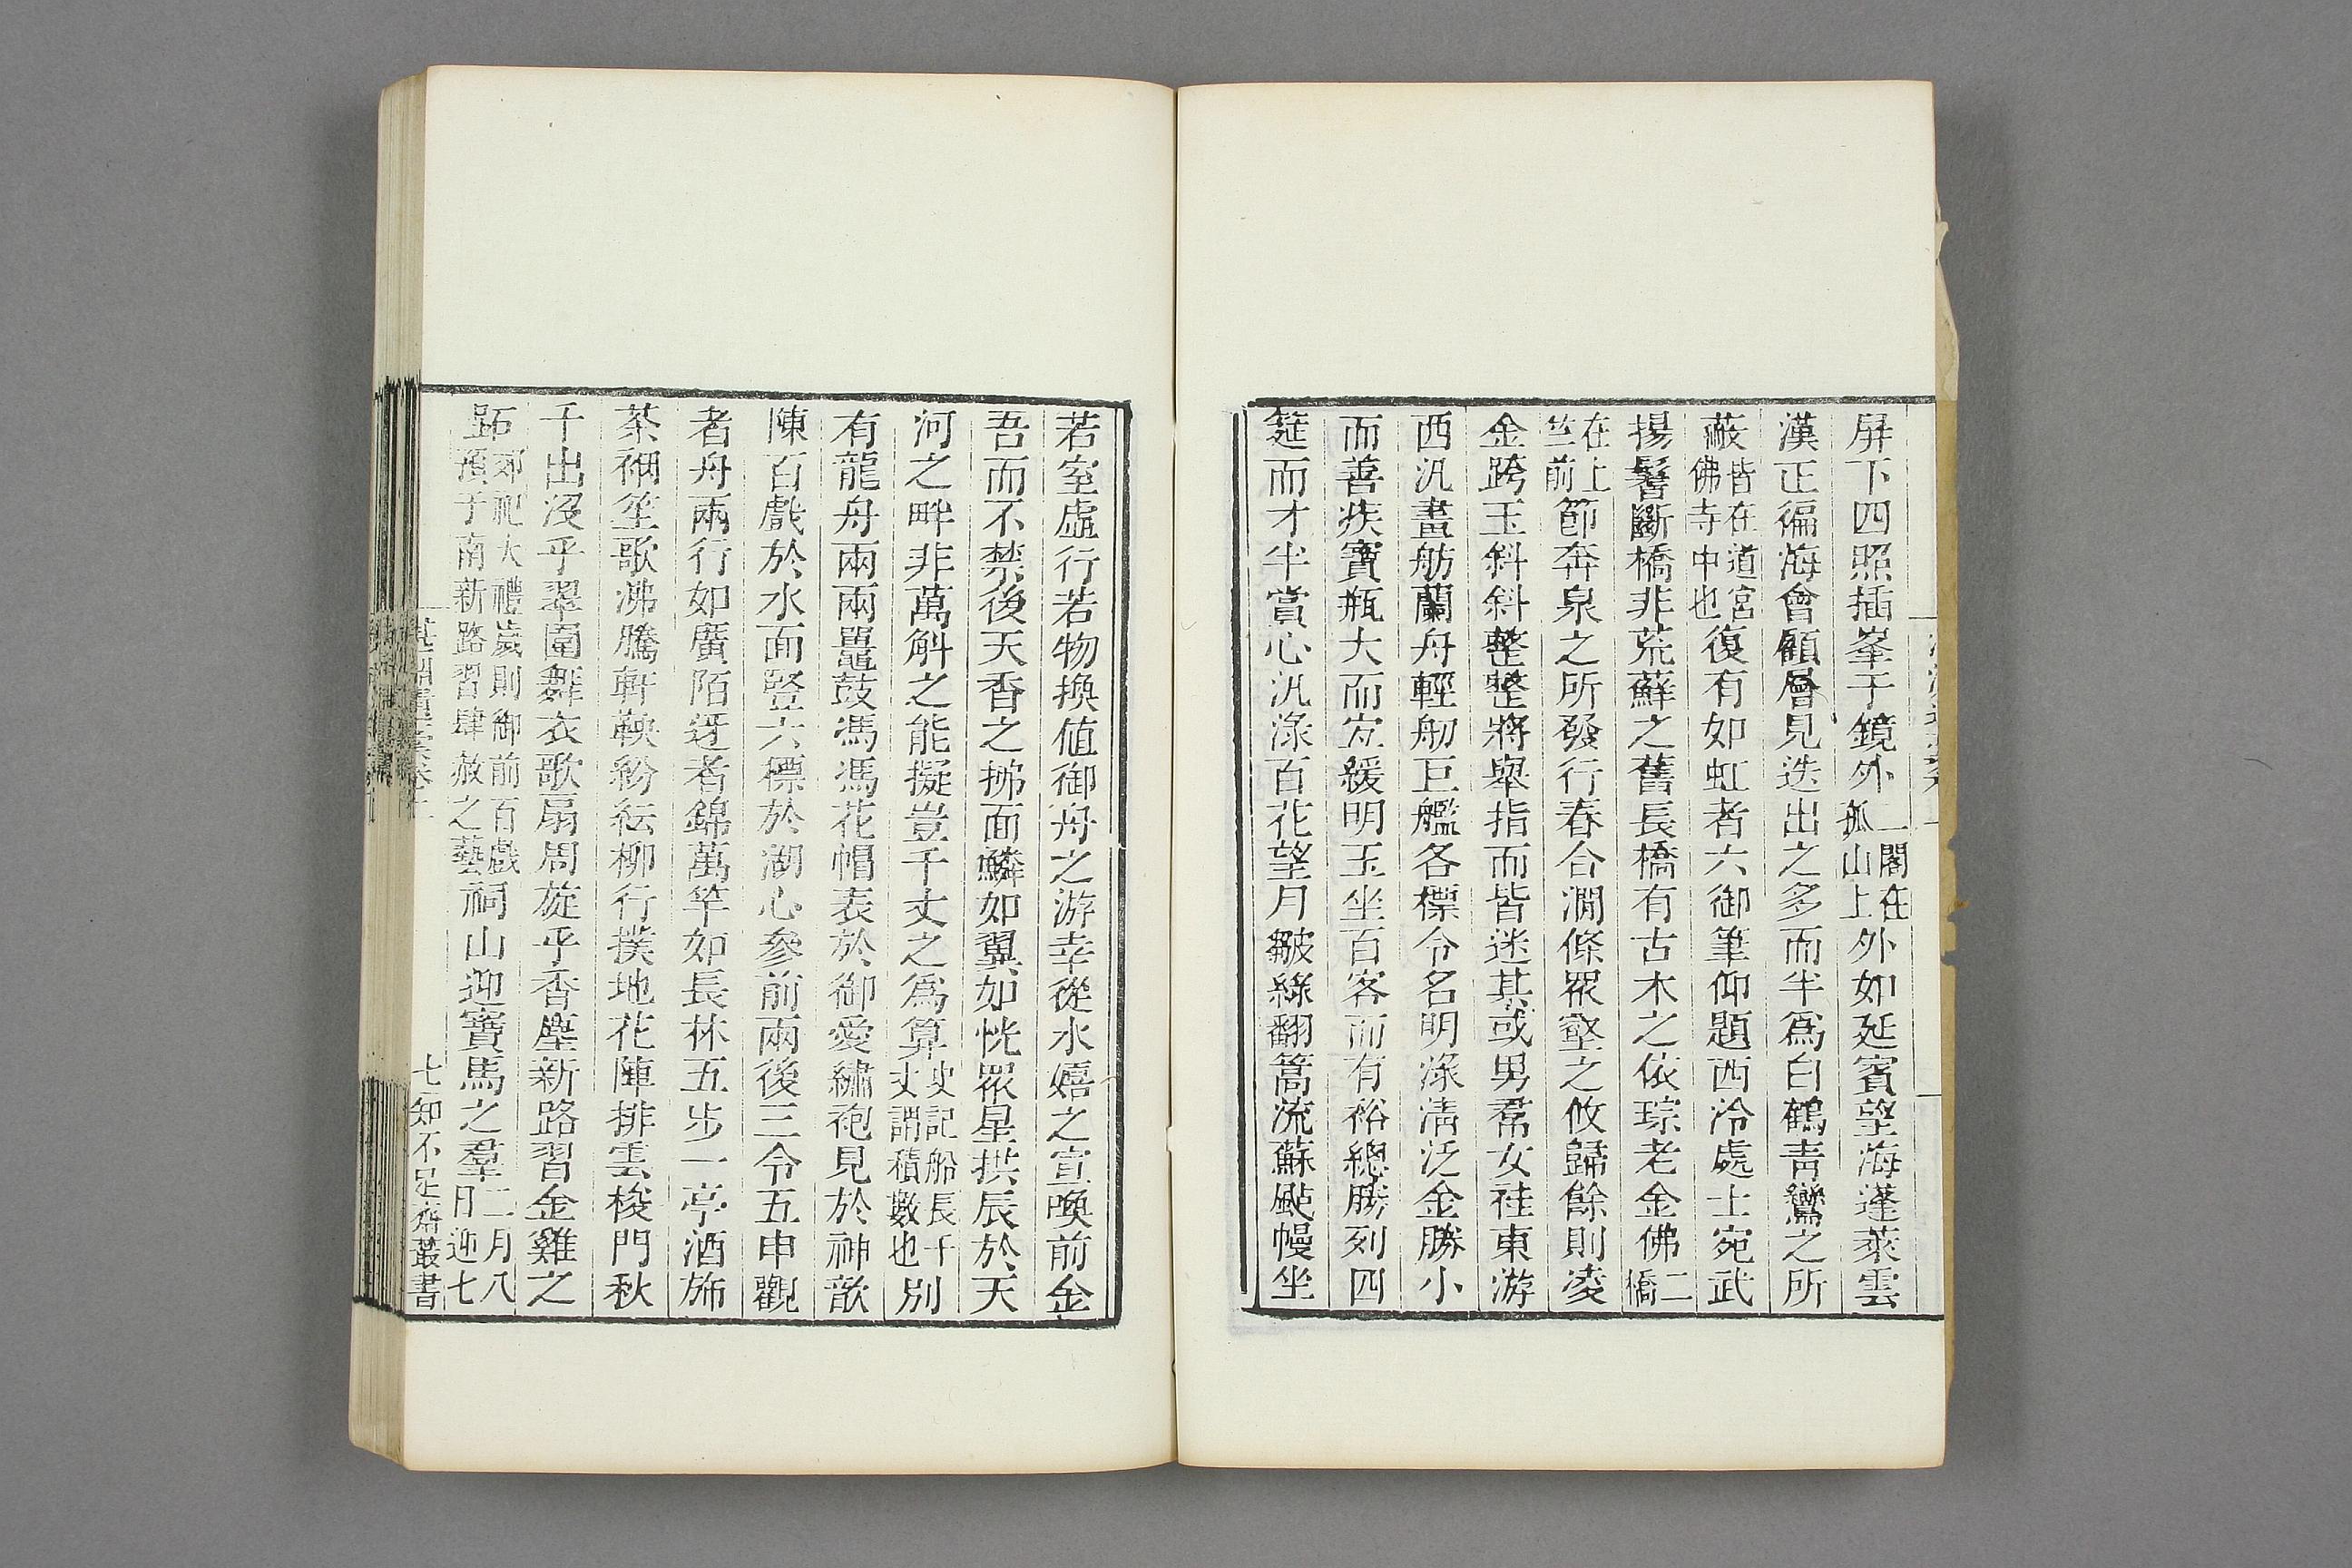 屏下四照插峯于鏡外一閣在孤山上外如延賓望海蓬萊雲
漢正徧海會顧層見迭出之多而半爲白鶴靑鸞之所
蔽皆在道宮佛寺中也復有如虹者六御筆仰題西泠處士宛武
揚鬐斷橋非荒蘚之舊長橋有古木之依琮老金佛二橋
在上竺前節奔泉之所發行春合澗條眾壑之攸歸餘則凌
金跨玉斜斜整整將舉指而皆迷其或男帬女袿東游
西汎畫舫蘭舟輕舠巨艦各標令名明淥淸泛金勝小
而善疾寶瓶大而宐緩明玉坐百客而有裕總勝列四
筵而才半賞心汎淥百花望月皺綠翻篙流蘇颭幔坐
若室虛行若物換値御舟之游幸從水嬉之宣喚前金
吾而不禁後天香之拂面鱗如翼如恍眾星拱辰於天
河之畔非萬斛之能擬豈千丈之爲算史記船長千丈謂積數也別
有龍舟兩兩鼉鼓馮馮花帽表於御愛繡袍見於神歆
陳百戲於水面豎六標於湖心參前兩後三令五申觀
者舟兩行如廣陌迓者錦萬竿如長林五步一亭酒斾
茶裍笙歌沸騰軒鞅紛紜柳行撲地花陣排雲梭門秋
千出沒乎翠圍舞衣歌扇周旋乎香塵新路習金雞之
距郊祀大禮歲則御前百戲預于南新路習肆赦之藝祠山迎寶馬之羣二月八日迎七
七知不足齋叢書